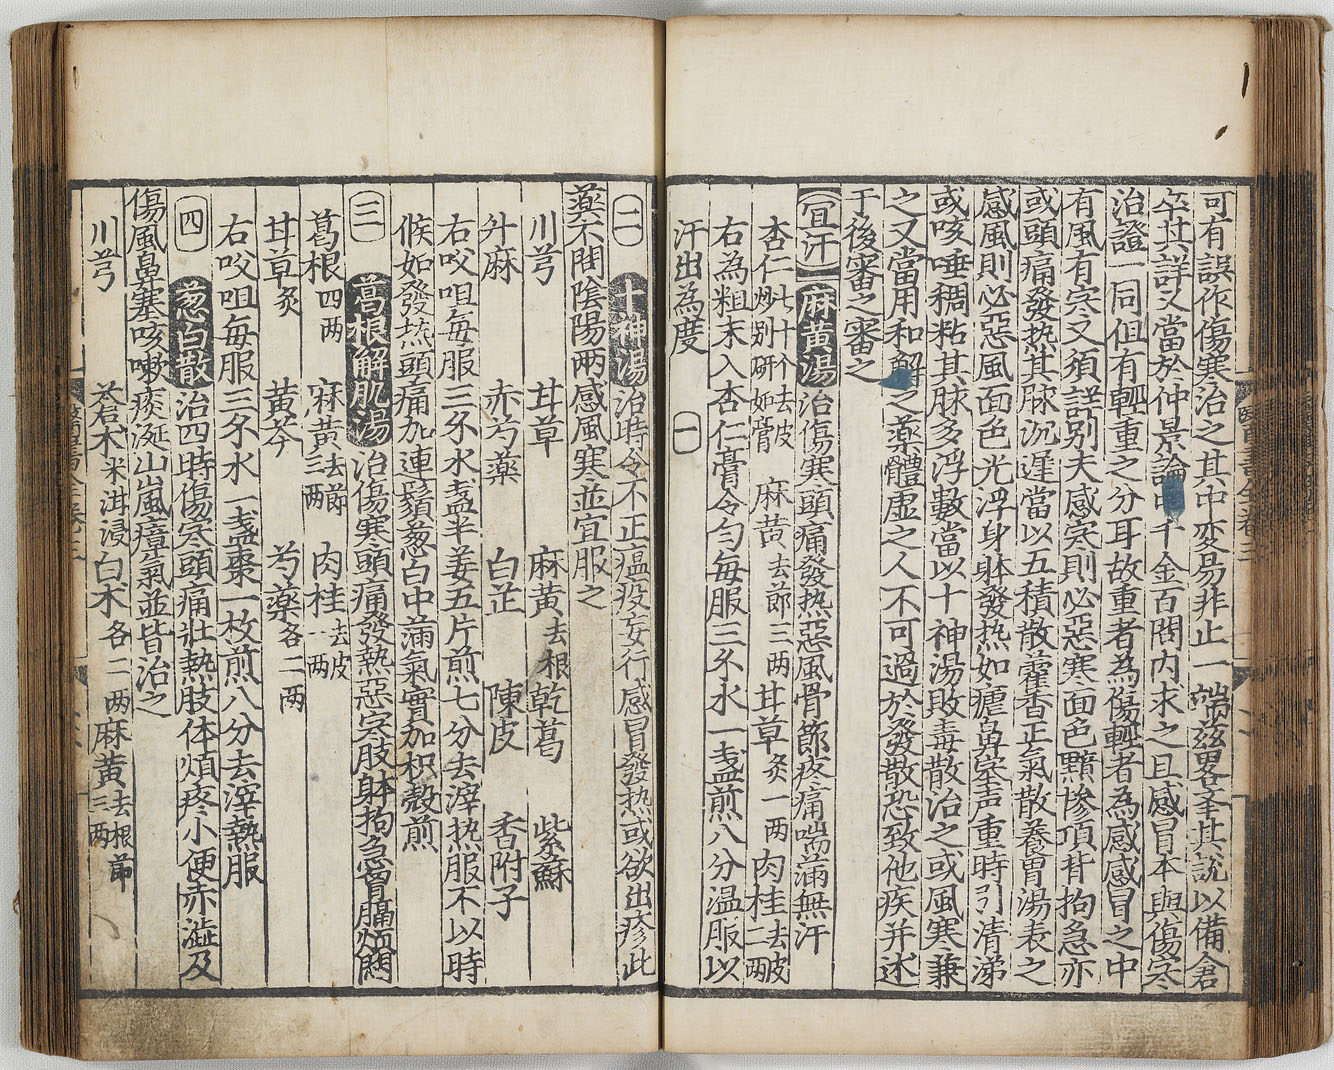 可有誤作傷寒治之其中変易非止一端兹畧峯其說以備倉
卒其詳又當於仲景論中千金百問内求之且感冒本與傷寒
治證一同但有輕重之分耳故重者為傷輕者為感感冒之中
有風有寒又須詳别夫感寒則必惡寒面色黯惨項背拘急亦
或頭痛發热其脉沉遲當以五積散藿香正氣散養胃湯表之
感風則必惡風面色光浮身躰發热如瘧鼻塞声重時引清涕
或咳唾稠粘其脉多浮數當以十神湯敗毒散治之或風寒兼
之又當用和解之薬體虚之人不可過於發散恐致他疾并述
于後審之審之
宜汗 麻黄湯 治傷寒頭痛發热惡風骨節疼痛喘滿無汗
杏仁七十个去皮炒别研如膏 麻黄去節三两 甘草炙一两 肉桂去皮二两
右為粗末入杏仁膏令勻每服三錢水一盞煎八分温服以
汗出為度 一
二 十神湯 治時令不正瘟疫妄行感冒發热或欲出疹此
薬不問陰陽两感風寒並宜服之
川芎 甘草 麻黄去根 乾葛 紫蘇
升麻 赤芍薬 白芷 陳皮 香附子
右㕮咀每服三錢水盞半姜五片煎七分去滓热服不以時
候如發热頭痛加連鬚葱白中滿氣實加枳殼煎
三 葛根解肌湯 治傷寒頭痛發熱惡寒肢躰拘急胷膈煩悶
葛根四两 麻黄去節三两 肉桂去皮一两
甘草炙 黄芩 芍薬各二两
右㕮咀每服三錢水一盞棗一枚煎八分去滓熱服
四 葱白散 治四時傷寒頭痛壯熱肢体煩疼小便赤澁及
傷風鼻塞咳嗽痰涎山嵐瘴氣並皆治之
川芎 蒼术米泔浸 白术各二两 麻黄去根節三两